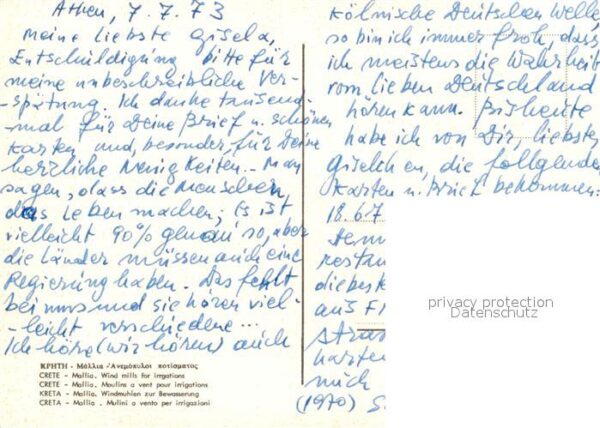 Athen, 7.7.73
Meine liebste Gisela,
Entschuldigung bitte für
meine unbeschreibliche Ver-
-spätung. Ich danke tausend-
-mal für Deine Brief u. schönen
Karten und, besonder, für Deine
herzliche Neuigkeiten.. Man
sagen, dass die Menschen
das Leben machen; Es ist
vielleicht 90% genau so, aber
die Länder müssen auch eine
Regierung haben. Das fehlt
bei uns und sie hören viel-
-leicht verschiedene...
Ich höre (wir hören) auch
ΚΡΗΤΗ - Μάλλια - Ἀνεμόμυλοι ποτίσματος
CRETE - Mallia. Wind mills for irrgations
CRETE - Mallia. Moulins a vent pour irrigations
KRETA - Mallia. Windmuhlen zur Bewasserung
CRETA - Mallia. Mulini a vento per irrigazioni
Kölnische Deutschen Welle,
so bin ich immer froh, dass
ich meistens die Wahrheit
vom lieben Deutschland
hören kann. Bis heute
habe ich von Dir, liebste
Giselchen, die follgende
Karten u. Brief bekommen:
18.6.7
restau
die besk
aus F
harten
mich
(1970) S.
privacy protection
Datenschutz